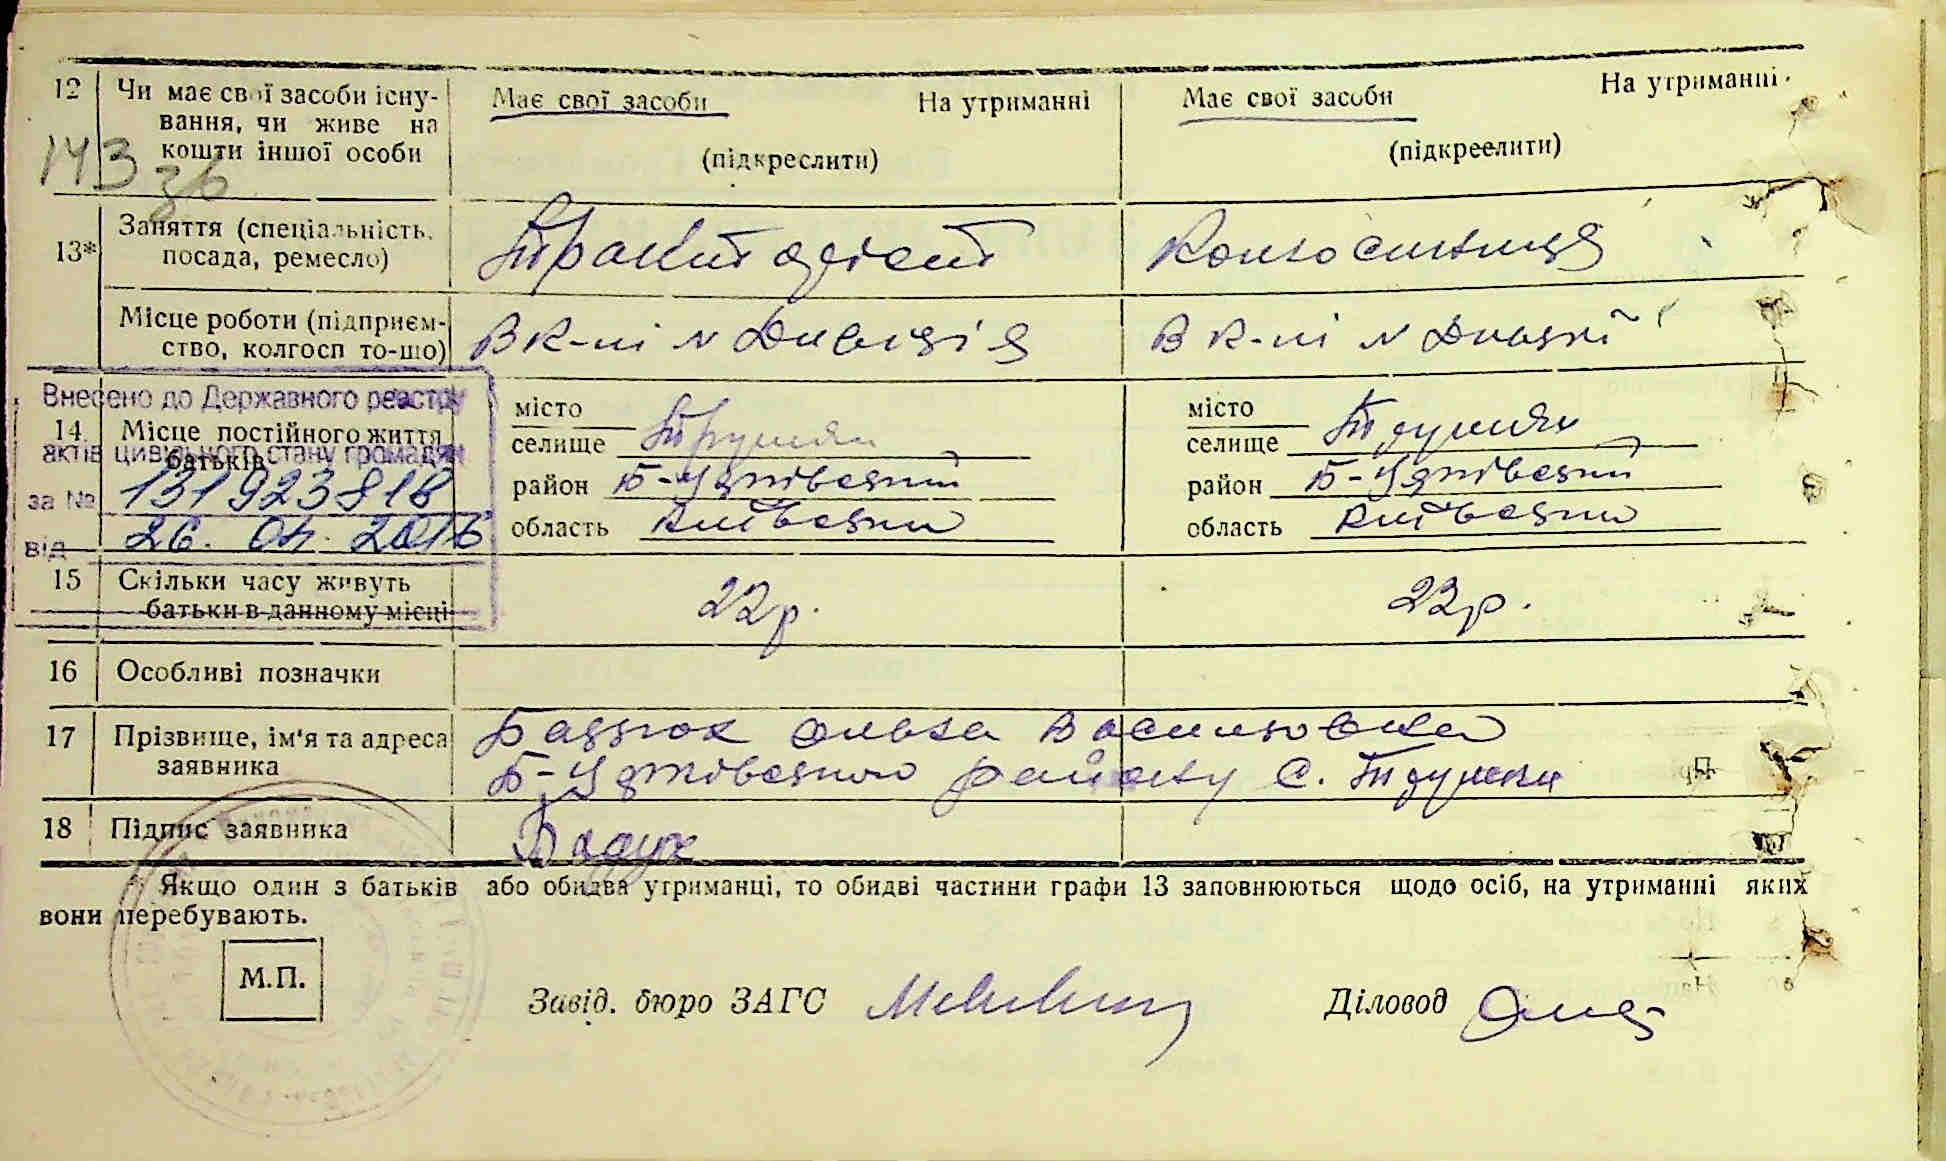 12 Чи має свої засоби існування, чи живе на кошти іншої особи
Має свої засоби На утриманні
(підкреслити)
Має свої засоби На утриманні
(підкреслити)
143 зв
13* Заняття (спеціальність, посада, ремесло)
Тракторист
Колгоспниця
Місце роботи (підприєм-
ство, колгосп то-що)
В к-пі
В к-пі
Внесено до Державного реєстру
актів цивільного стану громадян
за № 131923818
від 26. 04. 2016
14. Місце постійного життя
батьків
місто
селище Трушки
район Б-Церківський
область Київська
місто
селище Трушки
район Б-Церківський
область Київська
15 Скільки часу живуть
батьки в данному місці
22р.
22р.
16 Особливі позначки
17 Прізвище, ім'я та адреса
заявника
Ольга Василівна
Б-Церківського району с. Трушки
18 Підпис заявника
* Якщо один з батьків або обидва утриманці, то обидві частини графи 13 заповнюються щодо осіб, на утриманні яких
вони перебувають.
М.П.
Завід. бюро ЗАГС
Діловод